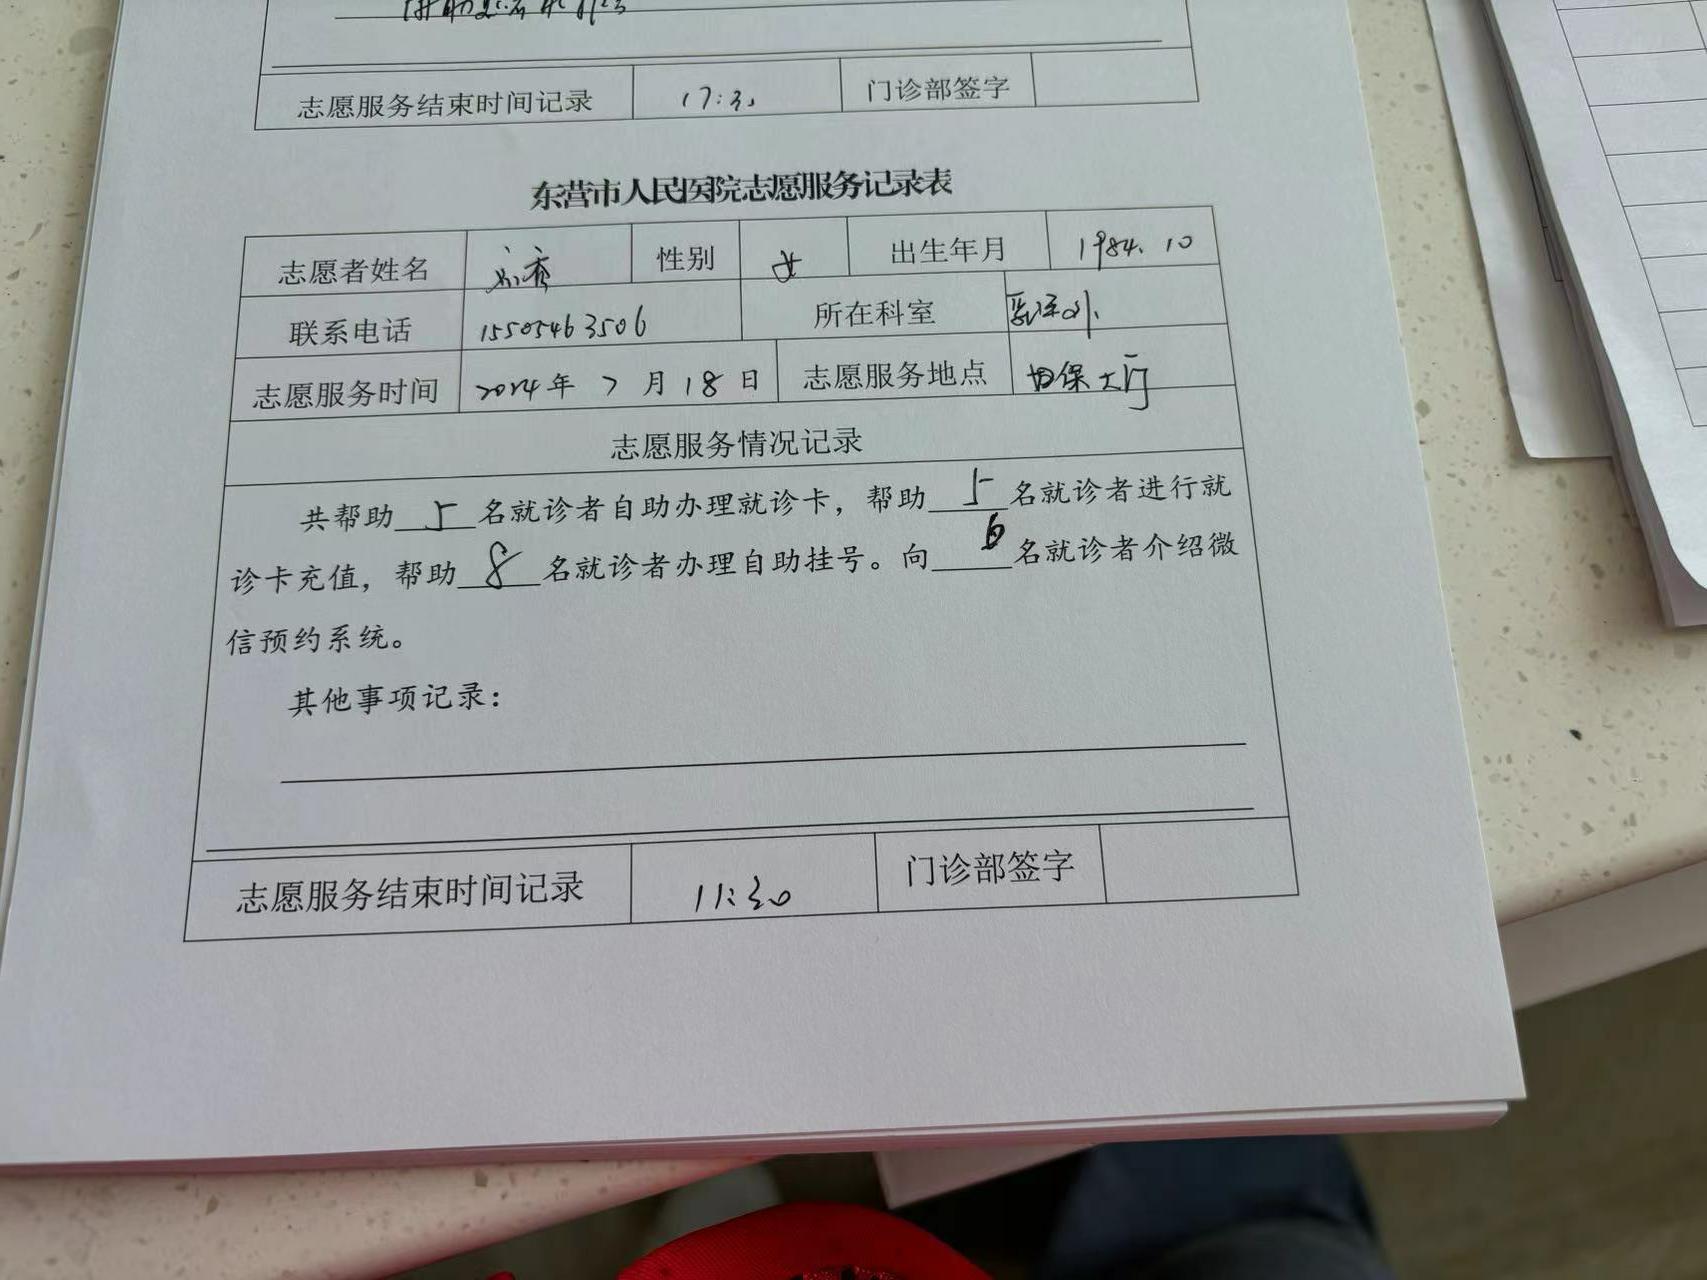 志愿服务结束时间记录 17:30 门诊部签字
东营市人民医院志愿服务记录表
志愿者姓名 性别 女 出生年月 1984.10
联系电话 15505463506 所在科室
志愿服务时间 2024年 7 月 18 日 志愿服务地点 医保大厅
志愿服务情况记录
共帮助 5 名就诊者自助办理就诊卡，帮助 5 名就诊者进行就
诊卡充值，帮助 8 名就诊者办理自助挂号。向 6 名就诊者介绍微
信预约系统。
其他事项记录：
志愿服务结束时间记录 11:30 门诊部签字